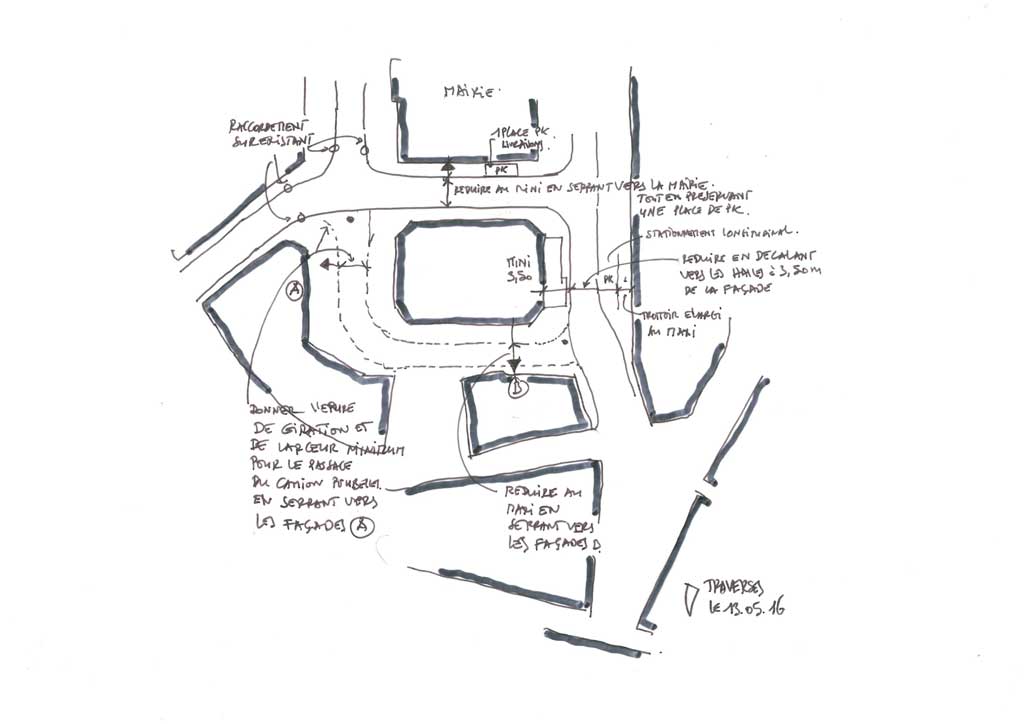 MAIRIE.
RACCORDEMENT
SUR EXISTANT
1 PLACE PK
LIVRAISONS.
PK
REDUIRE AU MINI EN SERRANT VERS LA MAIRIE.
TOUT EN PRESERVANT
UNE PLACE DE PK.
STATIONNEMENT LONGITUDINAL.
MINI
3,50
REDUIRE EN DECALANT
VERS LES HALLES à 3,50m
DE LA FAÇADE
PK
A
TROTTOIR ELARGI
AU MAXI
D
DONNER L'EPURE
DE GIRATION ET
DE LARGEUR MINIMUM
POUR LE PASSAGE
DU CAMION POUBELLE.
EN SERRANT VERS
LES FAÇADES A
REDUIRE AU
MAXI EN
SERRANT VERS
LES FAÇADES D.
TRAVERSES
LE 13.05.16